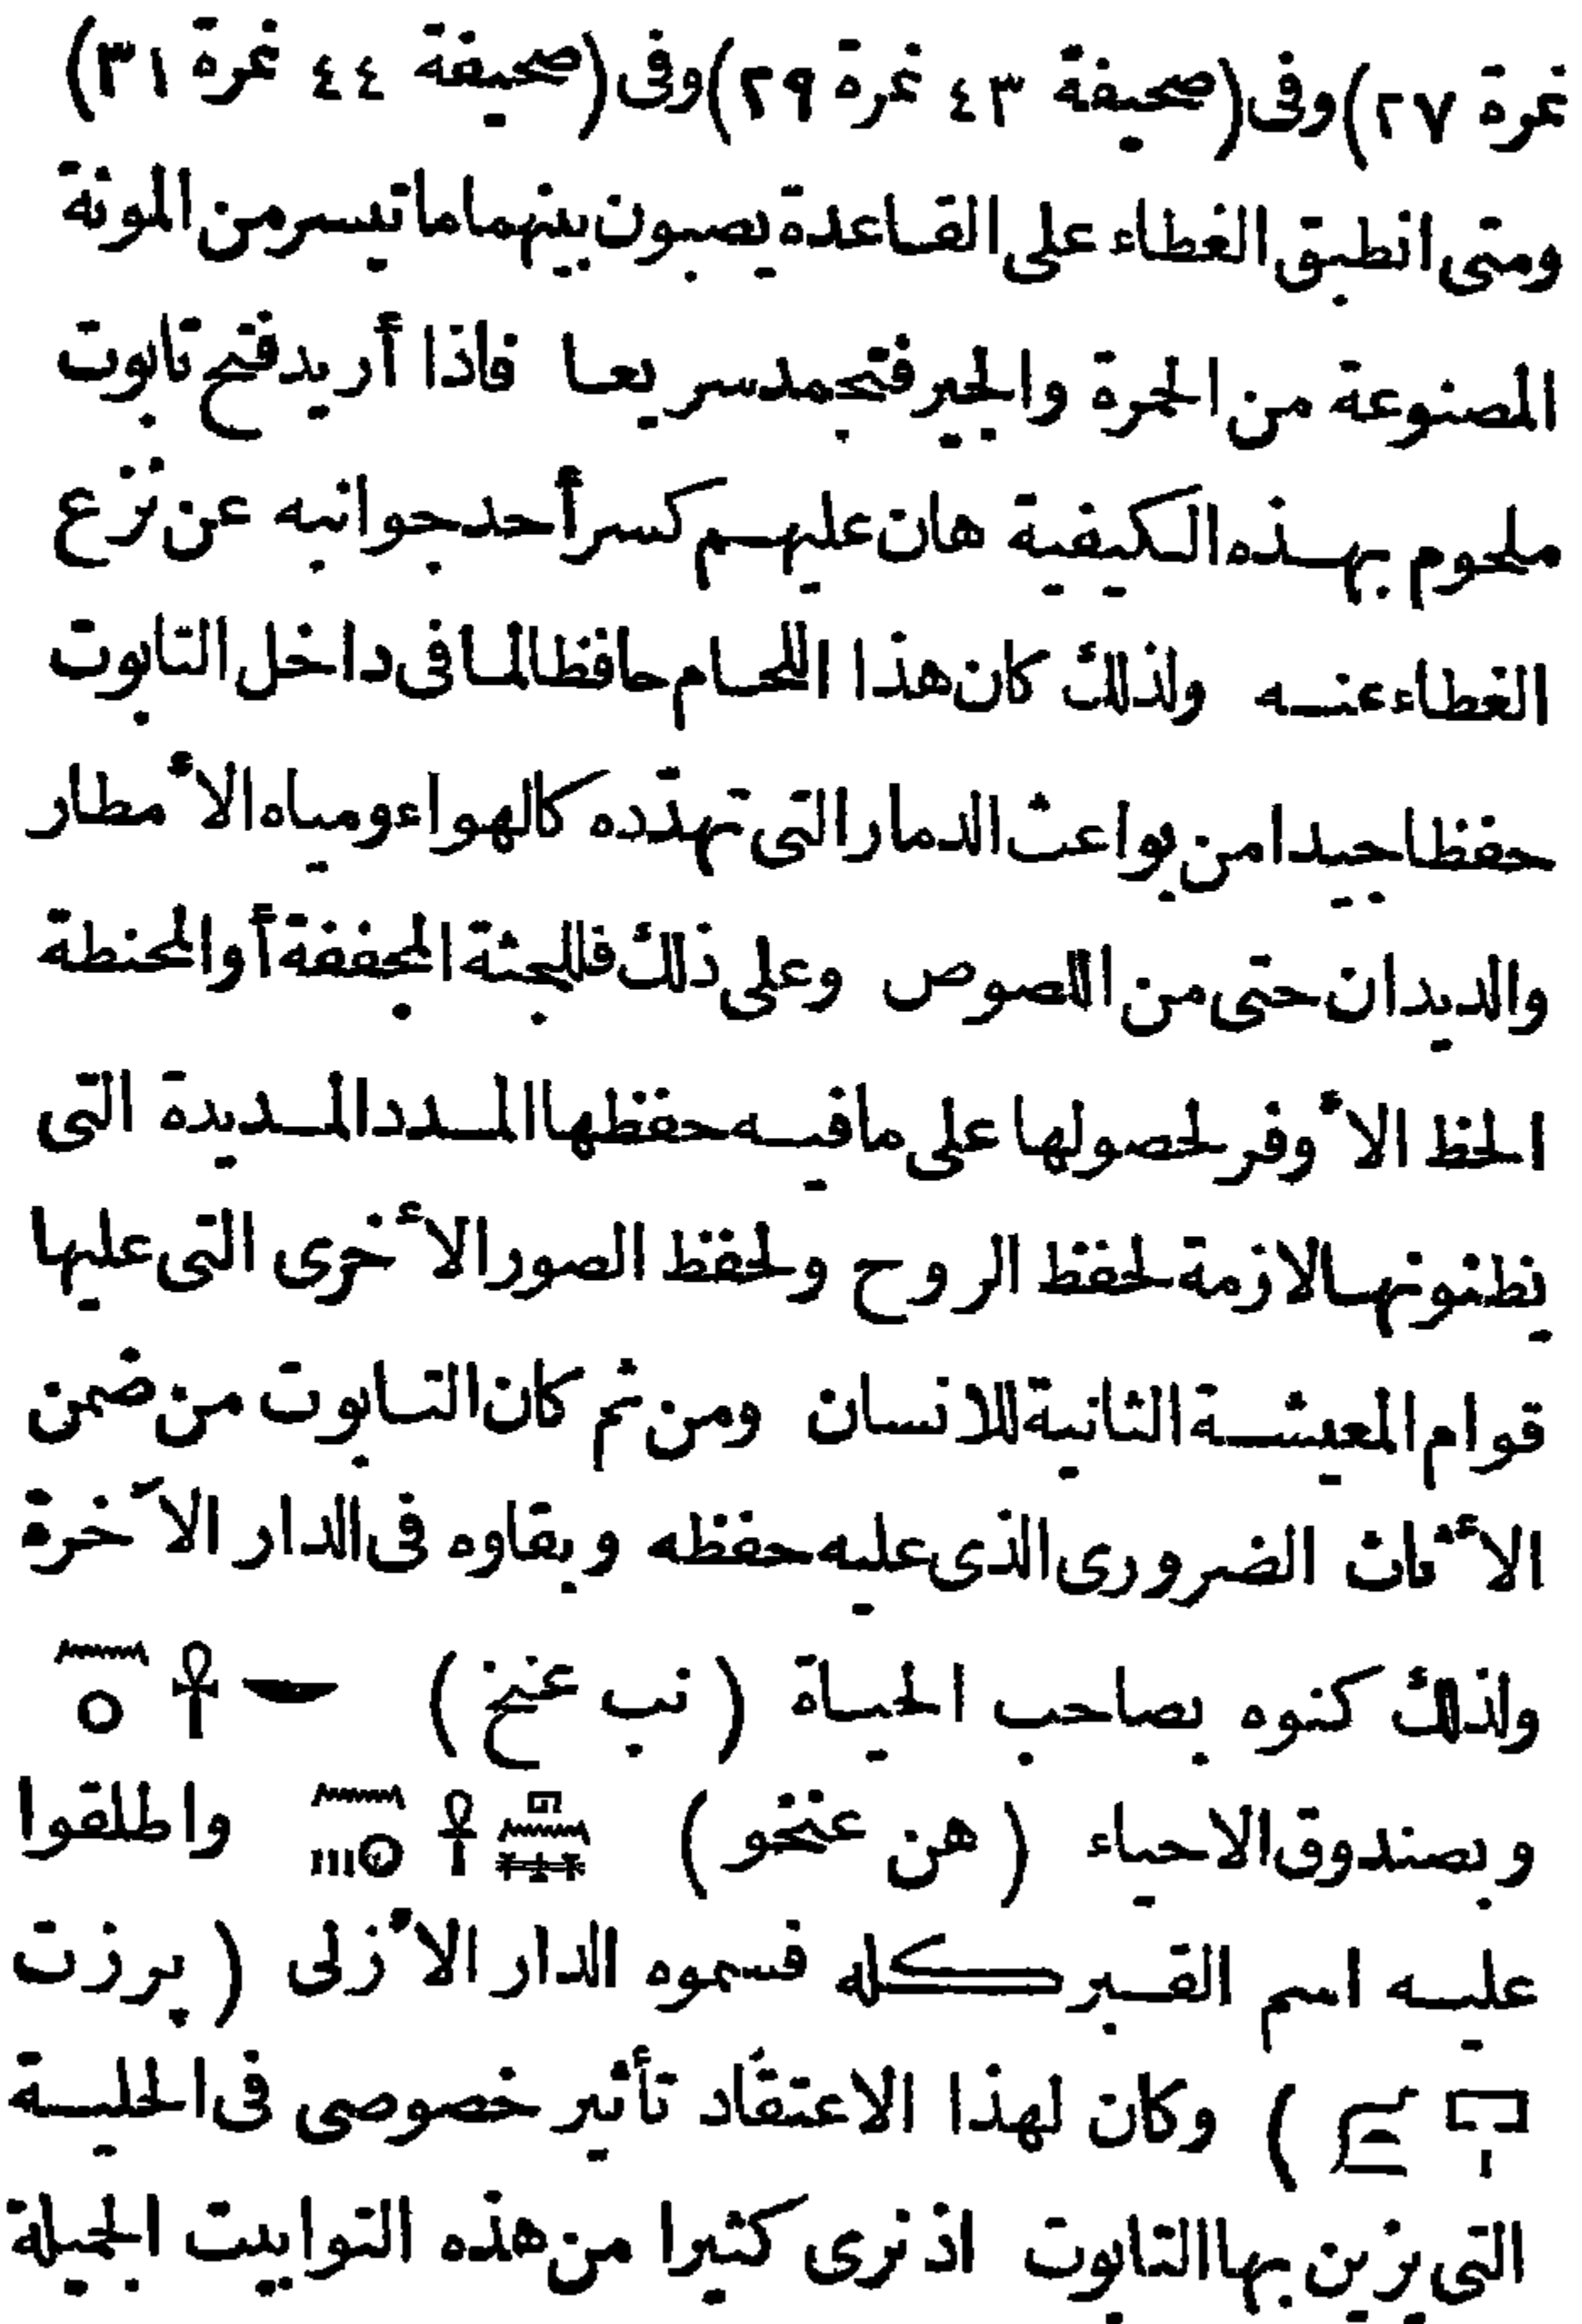 نمرة ٢٧) وفى (صحيفة ٤٣ نمرة ٢٩) وفى (صحيفة ٤٤ نمرة ٣١)
ومتى انطبق الغطاء على القاعدة يصبون بينهما ما تيسر من المونة
المصنوعة من الحمرة والجير فتجمد سريعا فاذا أريد فتح تابوت
ملحوم بهذه الكيفية هان عليهم كسر أحد جوانبه عن نزع
الغطاء عنه ولذلك كان هذا اللحام حافظا لما فى داخل التابوت
حفظا جيدا من بواعث الدمار التى تهدّده كالهواء ومياه الأمطار
والديدان حتى من اللصوص وعلى ذلك فللجثة المجففة أو المحنطة
الحظ الأوفر لحصولها على ما فيه حفظها المدد المديدة التى
يظنونها لازمة لحفظ الروح ولحفظ الصور الأخرى التى عليها
قوام المعيشة الثانية للانسان ومن ثم كان التابوت من ضمن
الأثاث الضرورى الذى عليه حفظه وبقاوه فى الدار الآخرة
ولذلك كنوه بصاحب الحياة (نب عنخ)
وبصندوق الاحياء (هن عنخو) واطلقوا
عليه اسم القبر كله فسموه الدار الأزلى (پر زت
) وكان لهذا الاعتقاد تأثير خصوصى فى الحلية
التى يزين بها التابوت اذ نرى كثيرا من هذه التوابيت الجميلة